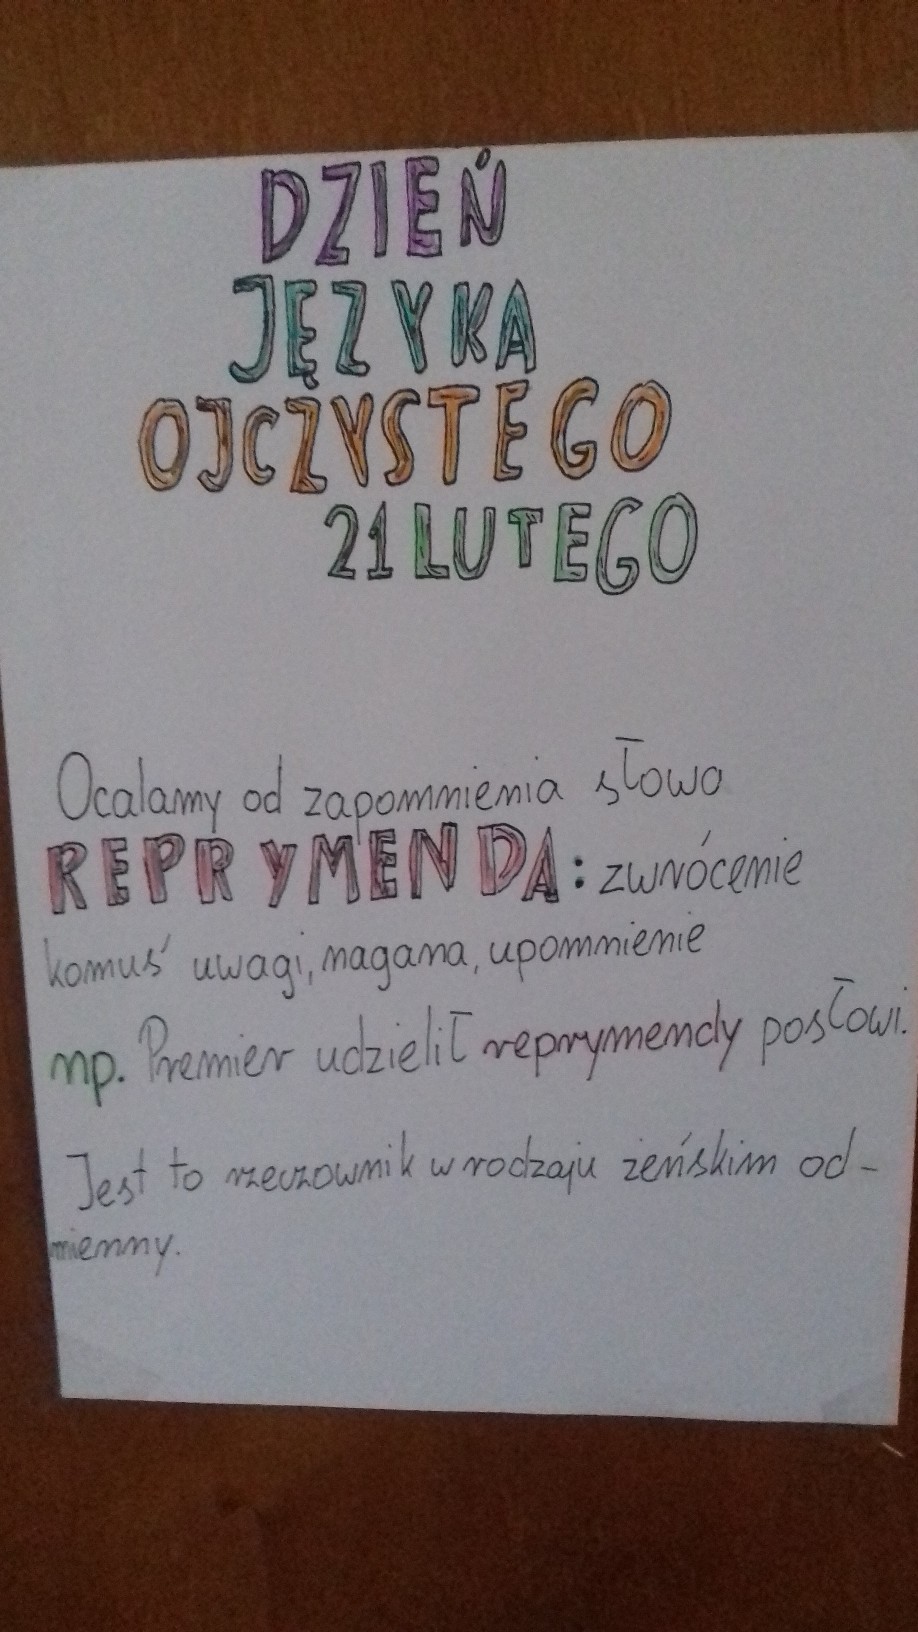 DZIEŃ
JĘZYKA
OJCZYSTEGO
21 LUTEGO
Ocalamy od zapomnienia słowo
REPRYMENDA: zwrócenie
komuś uwagi, nagana, upomnienie
np. Premier udzielił reprymendy posłowi.
Jest to rzeczownik w rodzaju żeńskim od-
mienny.